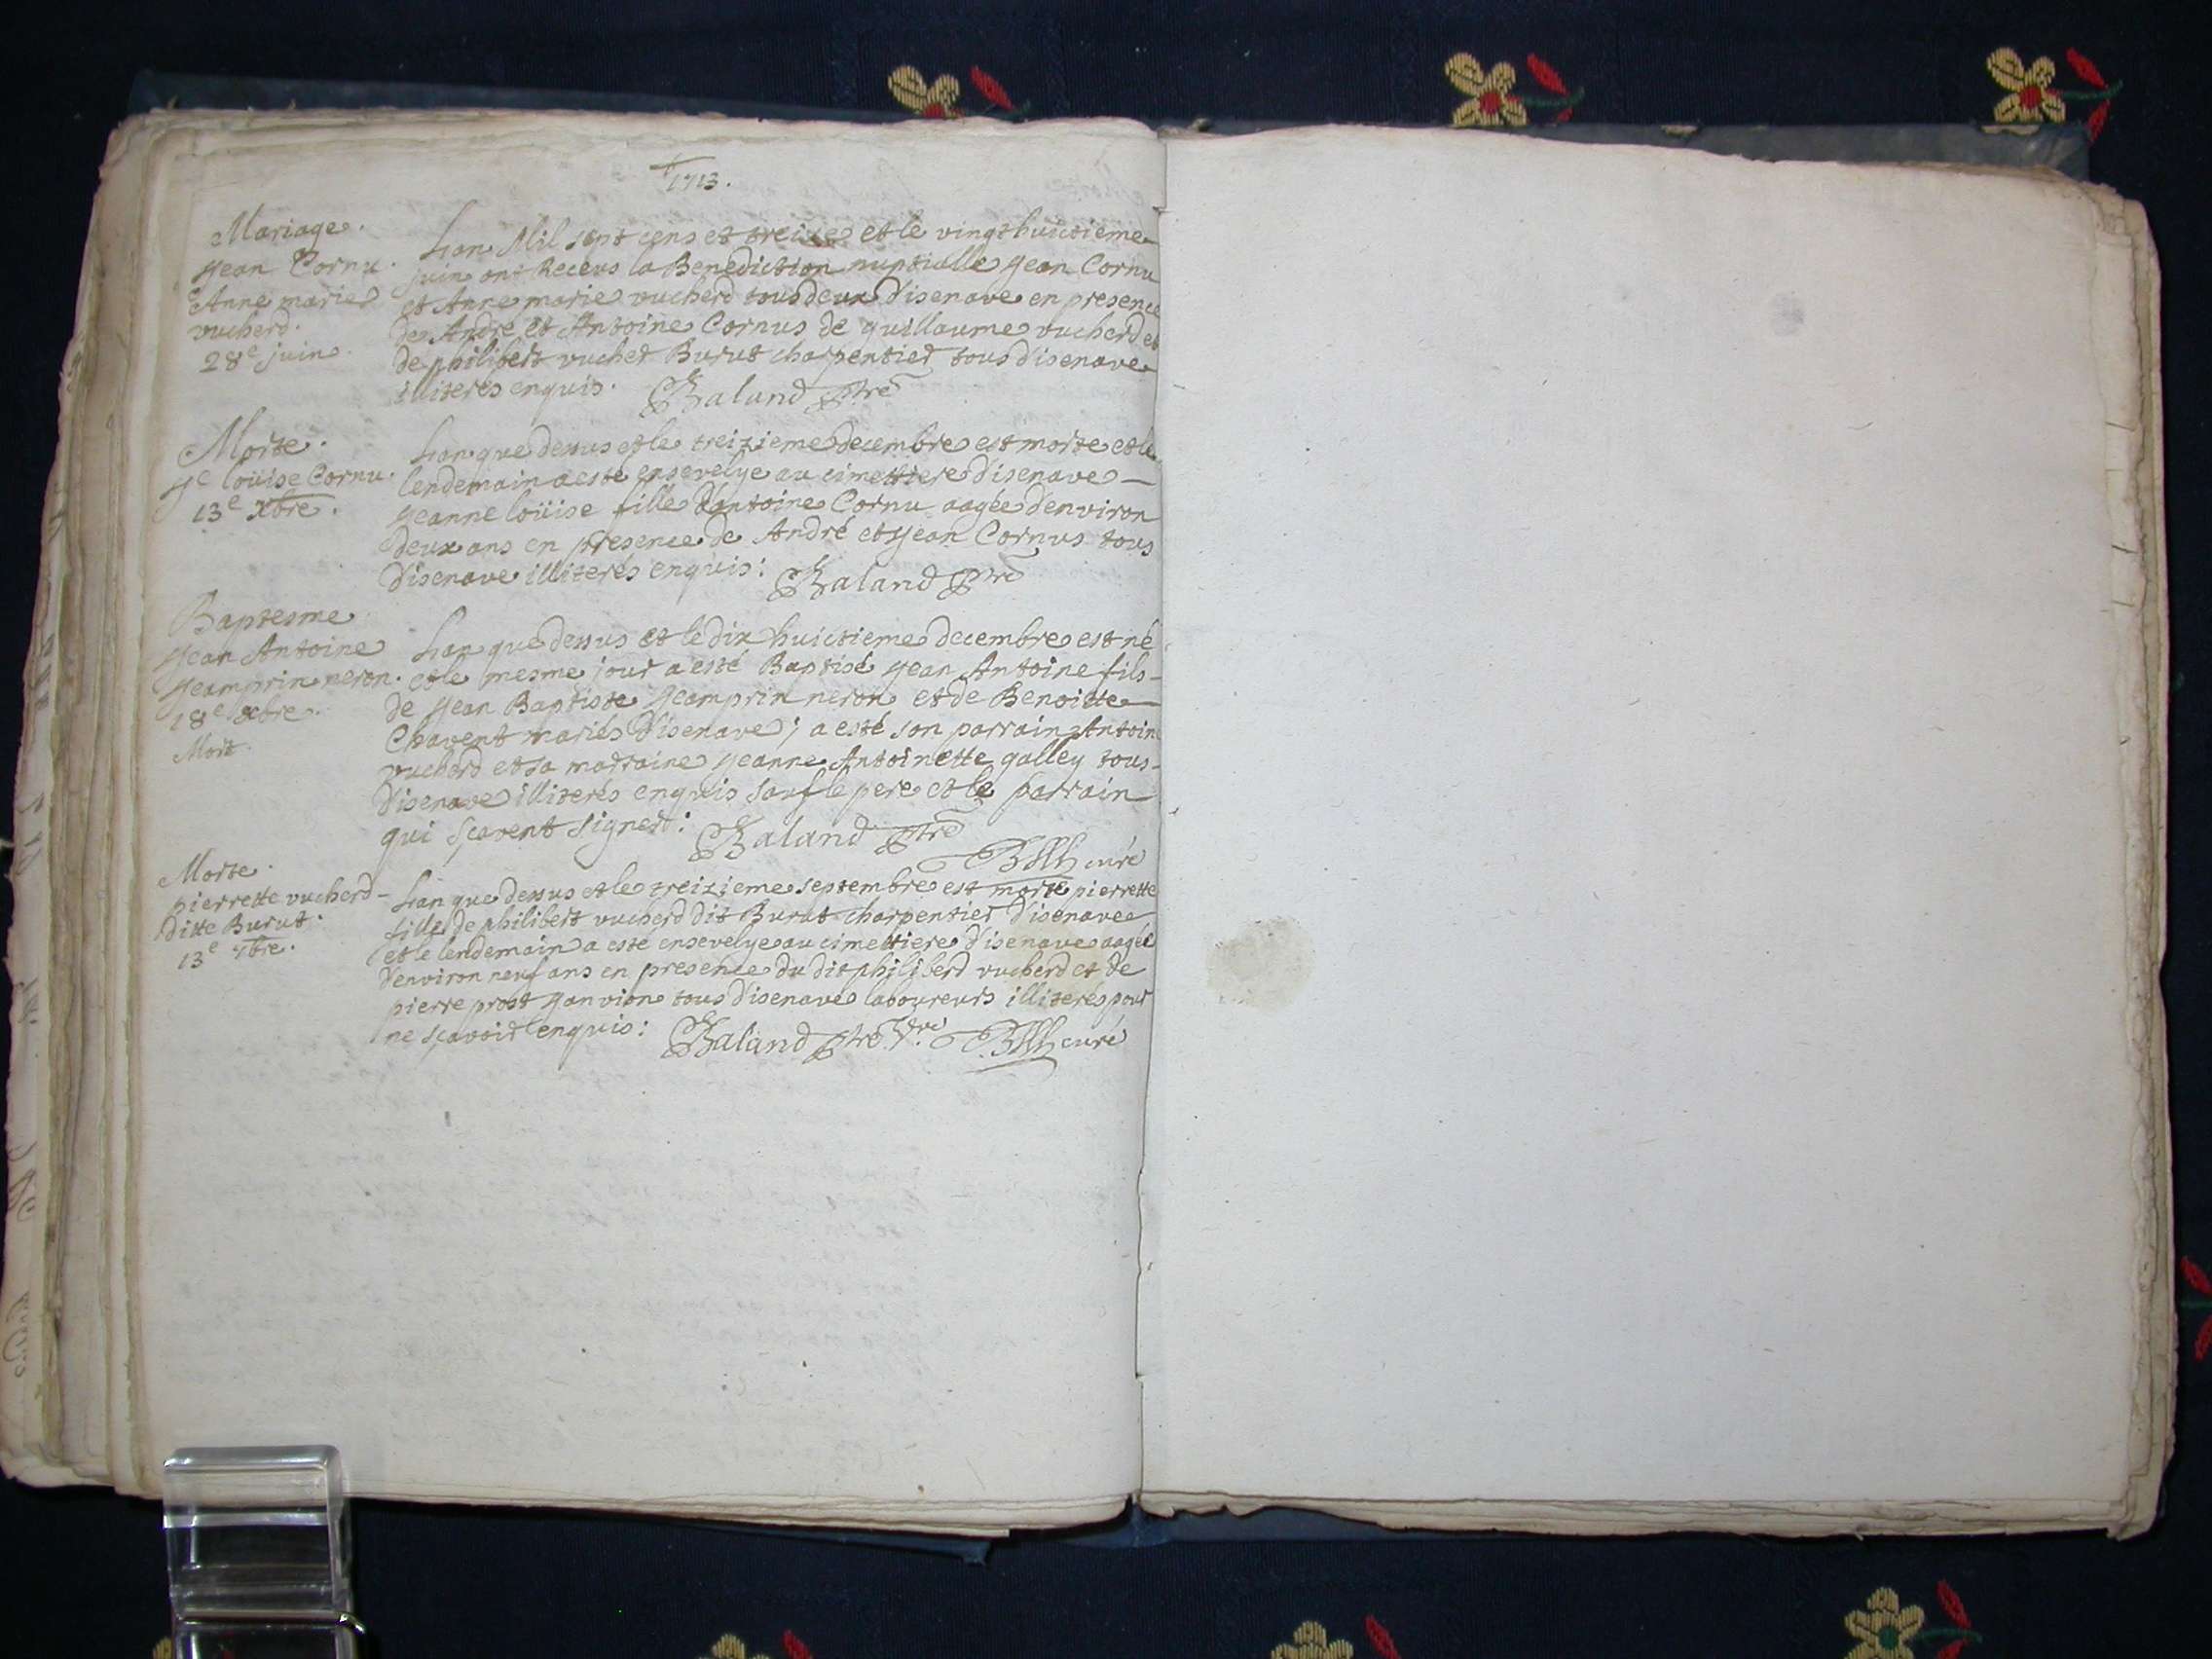 1713.
Mariage.
Jean Cornu.
Anne marie
vucherd.
28e juin.
Lan Mil sept cens et treize et le vingt huictieme
juin ont Receus la Benediction nuptialle Jean Cornu
et Anne marie vucherd tous deux d'isenave en presence
de André et Antoine Cornus de guillaume vucherd et
de philibert vucher Burut charpentier tous d'isenave
illiterés enquis. Baland ptre
Morte.
Je loüise Cornu.
13e xbre.
Lan que dessus et le treizieme decembre est morte et le
lendemain a esté ensevelye au cimettiere d'isenave
Jeanne loüise fille d'antoine Cornu aagée d'environ
deux ans en presence de André et Jean Cornus tous
d'isenave illiterés enquis: Baland ptre
Baptesme
Jean Antoine
Jeamprin neron.
18e xbre.
Mort.
Lan que dessus et le dix huictieme decembre est né
et le mesme jour a esté Baptisé Jean Antoine fils
de Jean Baptiste Jeamprin neron et de Benoitte
Chavent mariés d'isenave; a esté son parrain Antoine
vucherd et sa marraine Jeanne Antoinette galley tous
d'isenave illiterés enquis sauf le pere et le parrain
qui sçavent signer: Baland ptre
curé
Morte.
pierrette vucherd
ditte Burut.
13e 7bre.
Lan que dessus et le treizieme septembre est morte pierrette
fille de philibert vucherd dit Burut charpentier d'isenave
et le lendemain a esté ensevelye au cimettiere d'isenave aagée
d'environ neuf ans en presence du dit philiberd vucherd et de
pierre prost Janvion tous d'isenave laboureurs illiterés pour
ne sçavoir enquis: Baland ptre curé